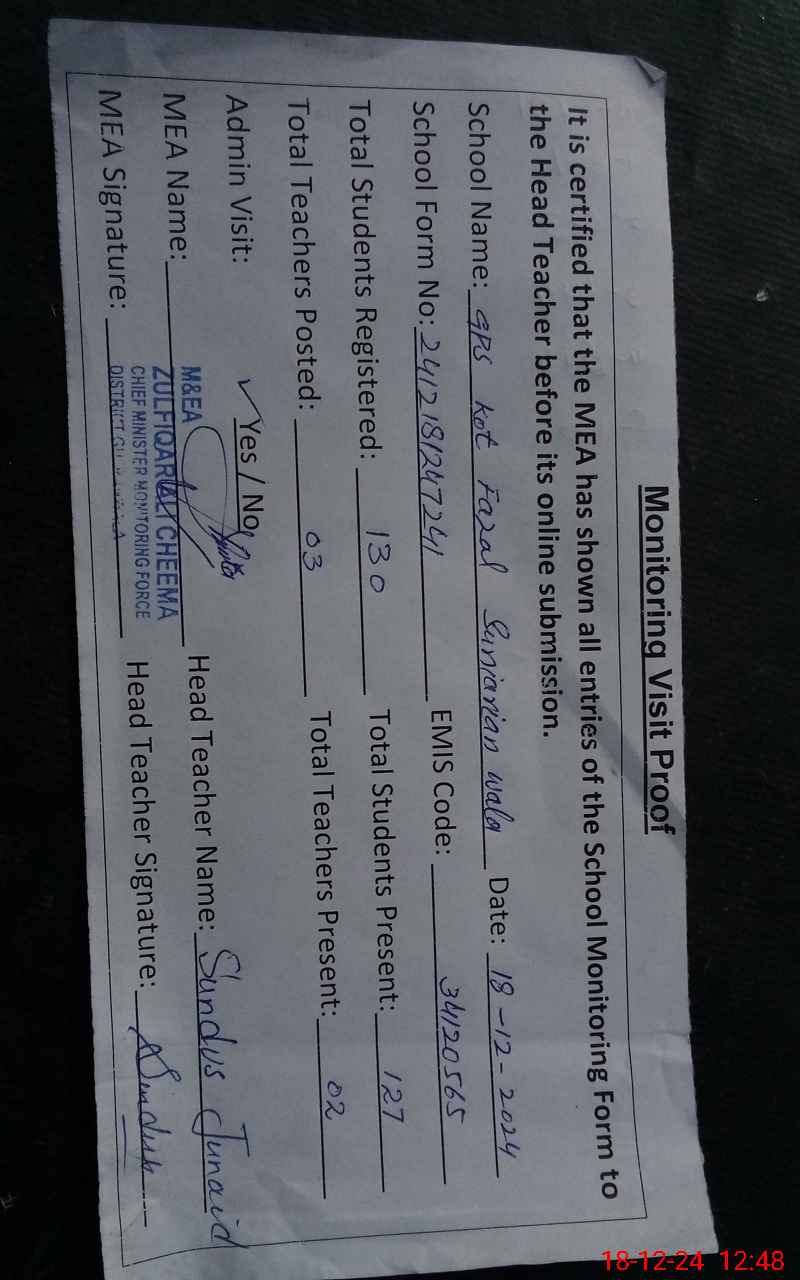 Monitoring Visit Proof
It is certified that the MEA has shown all entries of the School Monitoring Form to
the Head Teacher before its online submission.
School Name: GPS Kot Fazal Suniarian wala Date: 18-12-2024
School Form No: 2412181247241 EMIS Code: 34120565
Total Students Registered: 130 Total Students Present: 127
Total Teachers Posted: 03 Total Teachers Present: 02
Admin Visit: ✓Yes / No
MEA Name: Head Teacher Name: Sundus Junaid
MEA Signature: Head Teacher Signature: Sundus
M&EA
ZULFIQAR ALI CHEEMA
CHIEF MINISTER MONITORING FORCE
DISTRICT
18-12-24 12:48